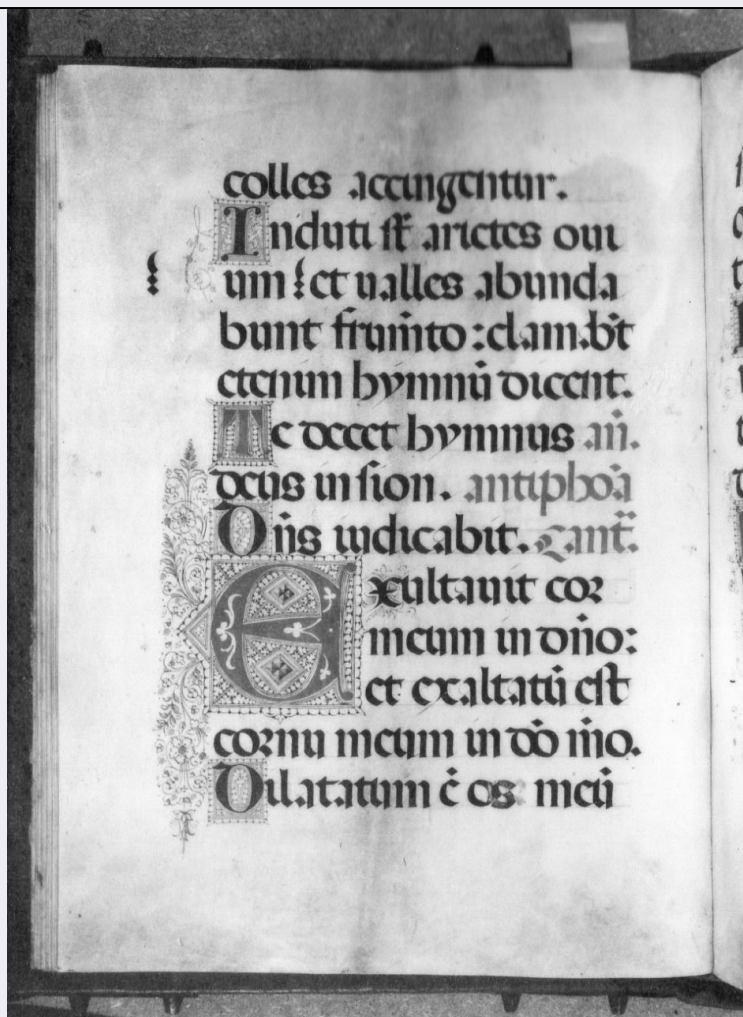 colles accingentur.
Induti st̄ arietes oui
um : et ualles abunda
bunt frum̄to : clamab̄t
etenim hymnū dicent.
Te decet hymnus añ.
deus in sion. antiphōa
Dn̄s iudicabit. Cant̄.
Exultauit cor
meum in dn̄o:
et exaltatū est
cornu meum in dō m̄o.
Dilatatum ē os meū